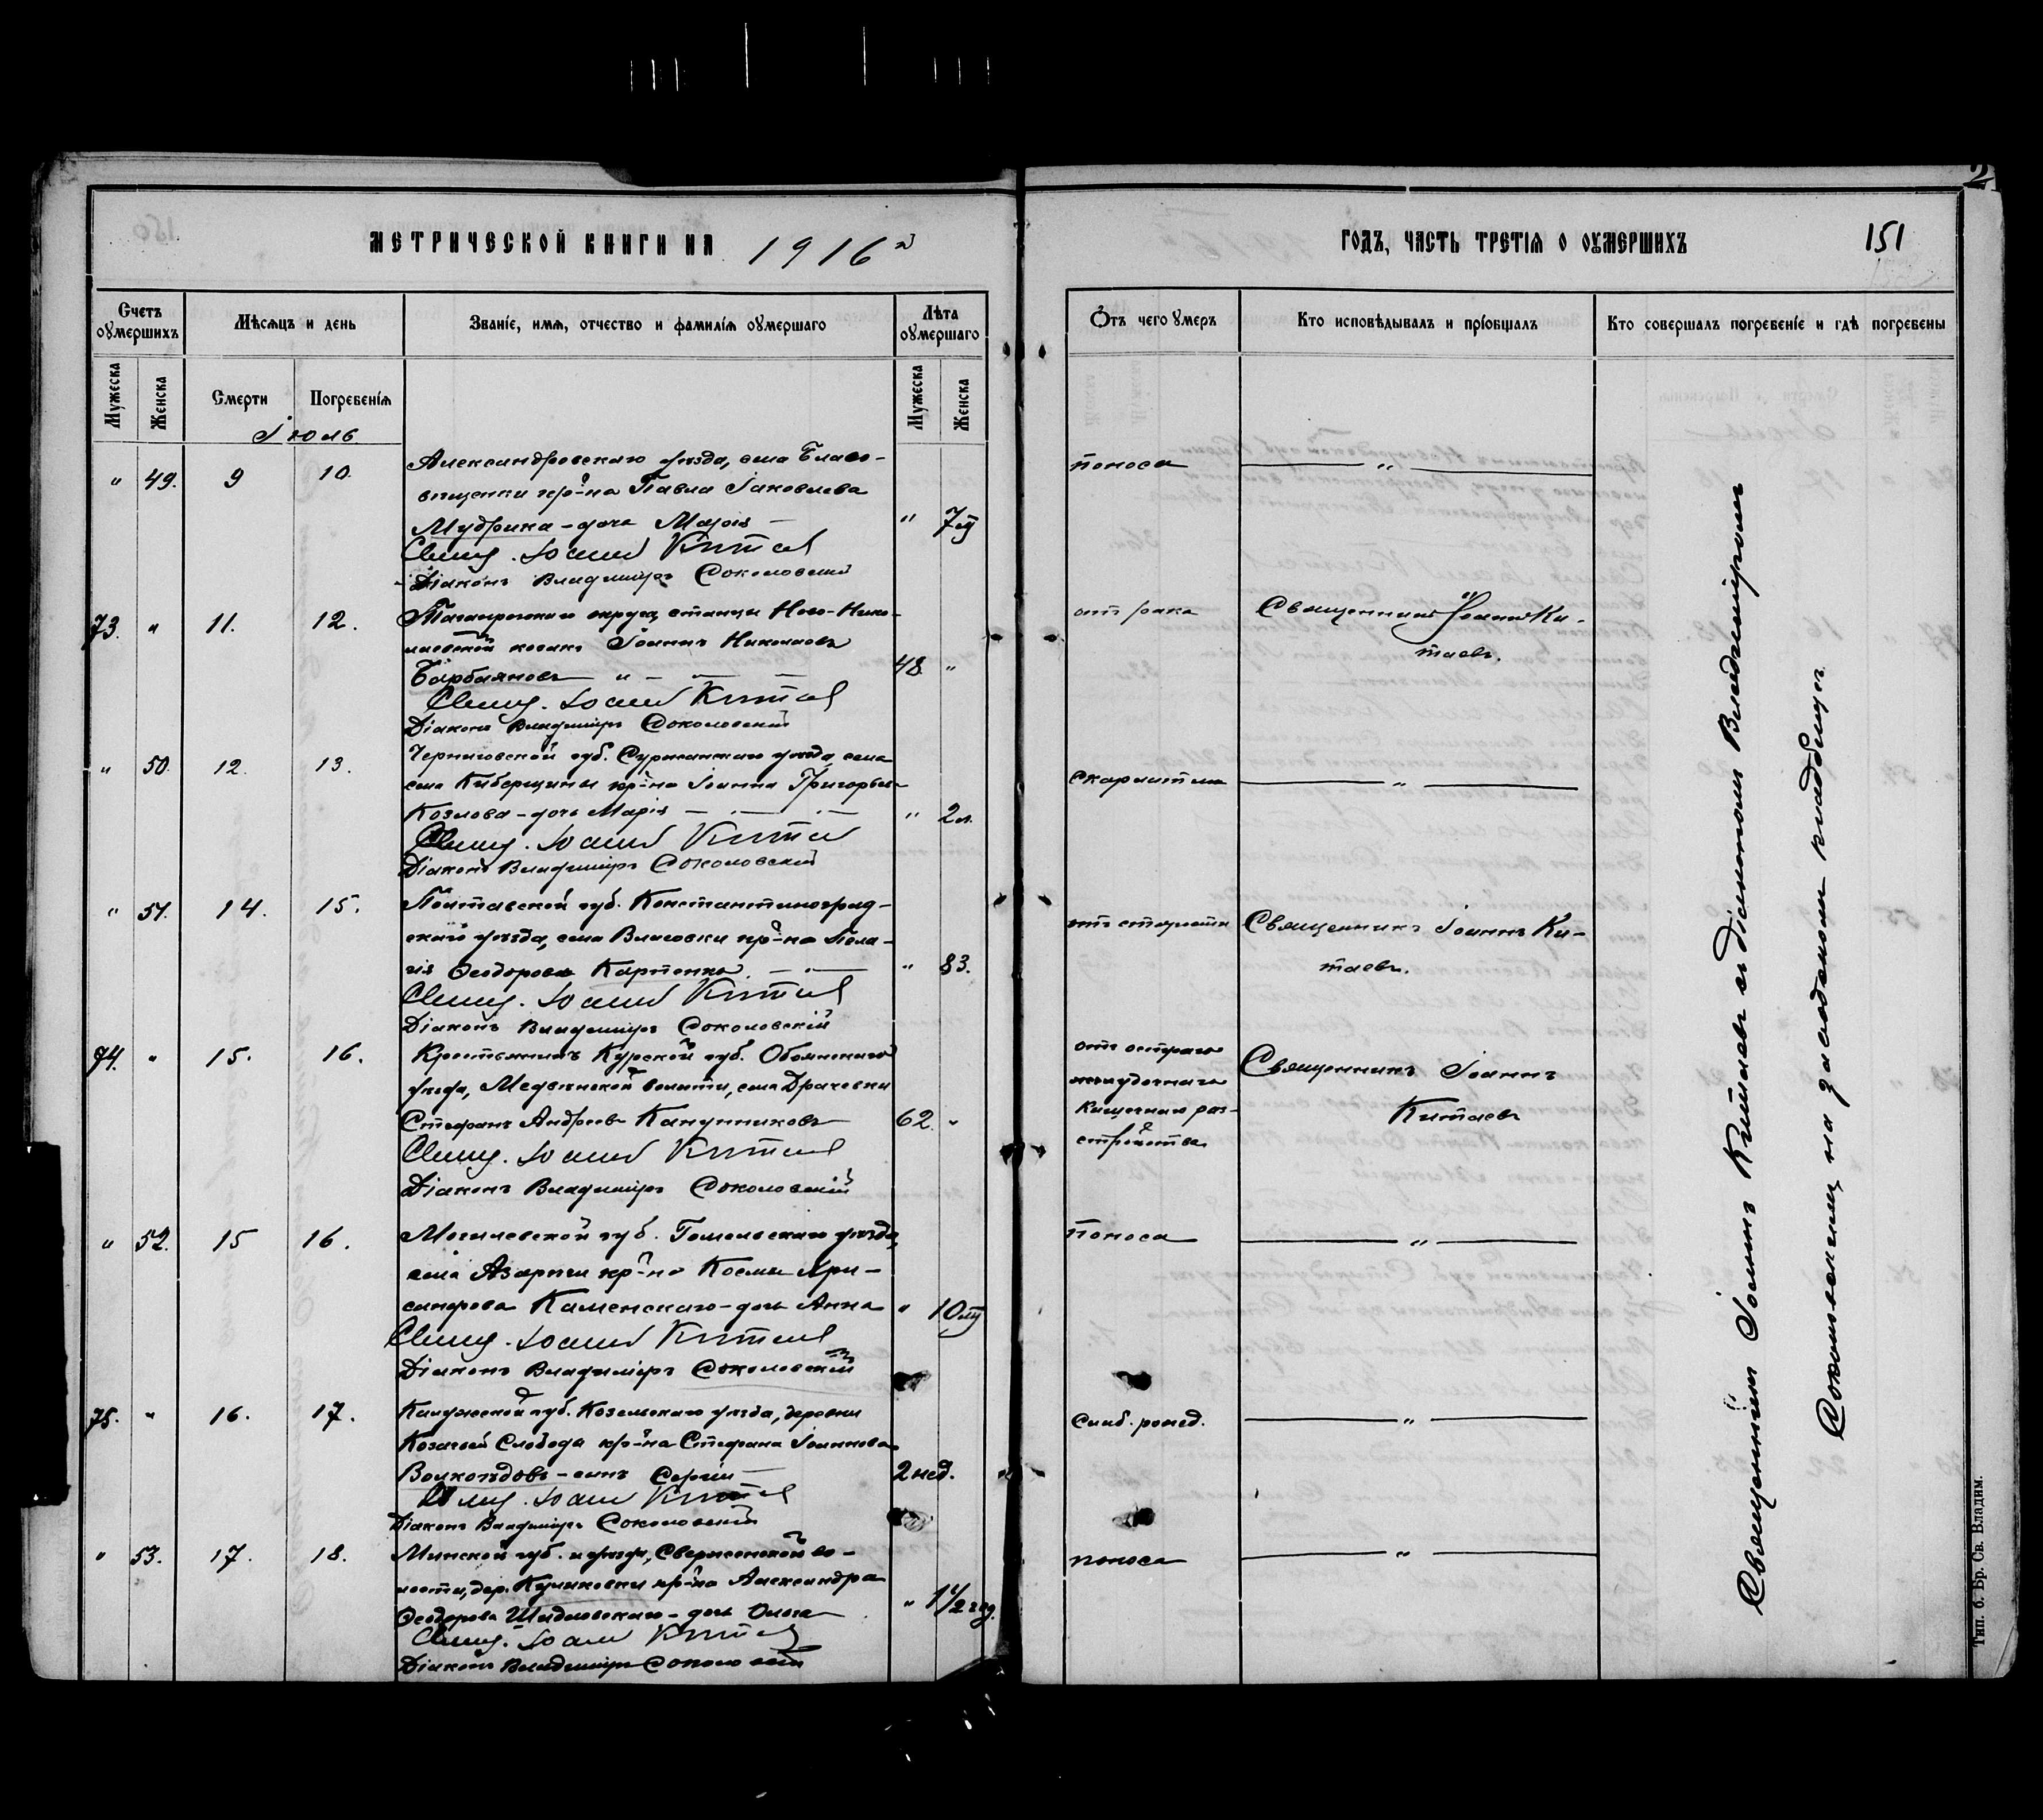 2
МЕТРИЧЕСКОЙ КНИГИ НА 1916 й
ГОДЪ, ЧАСТЬ ТРЕТІЯ О ОУМЕРШИХЪ
151
Счетъ оумершихъ
Мѣсяцъ и день
Званіе, имя, отчество и фамилія оумершаго
Лѣта оумершаго
Отъ чего умеръ
Кто исповѣдывалъ и пріобщалъ
Кто совершалъ погребеніе и гдѣ погребены
Мужеска
Женска
Смерти
Погребенія
Мужеска
Женска
Іюль
" 49. 9 10. Александровскаго уѣзда, села Благо-
вѣщенки кр-на Павла Іаковлева
Мудрика - дочь Марія — " 7 м
Свящ. Іоаннъ Китаевъ
Діаконъ Владиміръ Соколовскій
поноса — " —
73. " 11. 12. Таганрогскаго округа, станицы Ново-Нико-
лаевской козакъ Іоаннъ Николаевъ
Барбаяновъ — " — — 48. "
Свящ. Іоаннъ Китаевъ
Діаконъ Владиміръ Соколовскій
отъ рака
Священникъ Іоаннъ Ки-
таевъ.
" 50. 12. 13. Черниговской губ. Суражскаго уѣзда, села
села кр-на Іоанна Григорьева
Козлова - дочь Марія — " 2 л.
Свящ. Іоаннъ Китаевъ
Діаконъ Владиміръ Соколовскій
скарлатина — " —
" 51. 14. 15. Полтавской губ. Константиноград-
скаго уѣзда, села Власовки кр-ка Пела-
гія Ѳеодорова Карпенко. — " 83.
Свящ. Іоаннъ Китаевъ
Діаконъ Владиміръ Соколовскій
отъ старости
Священникъ Іоаннъ Ки-
таевъ.
74. " 15. 16. Крестьянинъ Курской губ. Обоянскаго
уѣзда, Медвѣнской волости, села
Стефанъ Андреевъ Канунниковъ 62. "
Свящ. Іоаннъ Китаевъ
Діаконъ Владиміръ Соколовскій
отъ остраго
желудочнаго
кишечнаго раз-
стройства
Священникъ Іоаннъ
Китаевъ
" 52. 15 16. Могилевской губ. Гомельскаго уѣзда,
села Азаричи кр-на Космы Хри-
санфова Каменскаго - дочь Анна " 10 м
Свящ. Іоаннъ Китаевъ
Діаконъ Владиміръ Соколовскій
поноса — " —
75. " 16. 17. Калужской губ. Козельскаго уѣзда, деревни
Козачьей Слободы кр-на Стефана Іоаннова
Волкоѣдовъ - сынъ Сергій — 2 нед.
Свящ. Іоаннъ Китаевъ
Діаконъ Владиміръ Соколовскій
слаб. рожд. — " —
" 53. 17. 18. Минской губ. и уѣзда, Сверженской во-
лости, дер. Куликовки кр-на Александра
Ѳеодорова Шидловскаго - дочь Ольга " 1 1/2 год.
Свящ. Іоаннъ Китаевъ
Діаконъ Владиміръ Соколовскій
поноса — " —
Священникъ Іоаннъ Китаевъ съ діакономъ Владиміромъ
Соколовскимъ на заводскомъ кладбищѣ
Тип. б. Бр. Св. Владим.